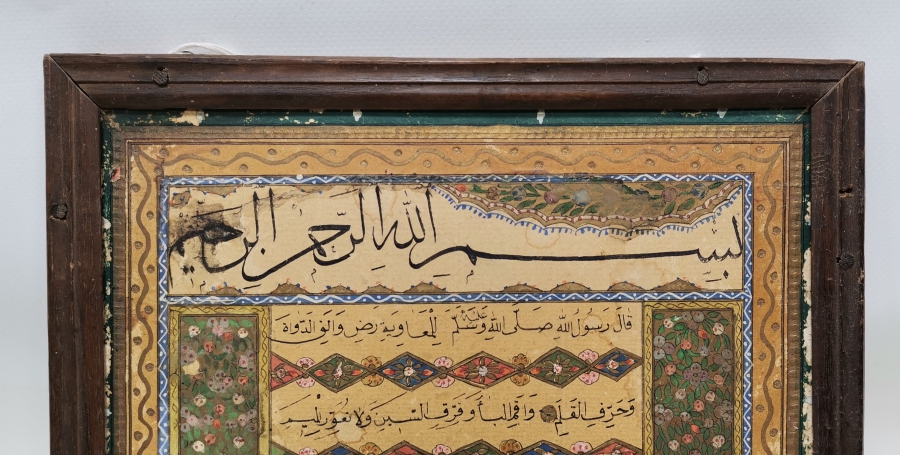 بسم الله الرحمن الرحيم
قال رسول الله صلى الله عليه وسلم للمعاوية رض والق الدواة
وحرف القلم واقم الباء وفرق السين ولا تعور الميم